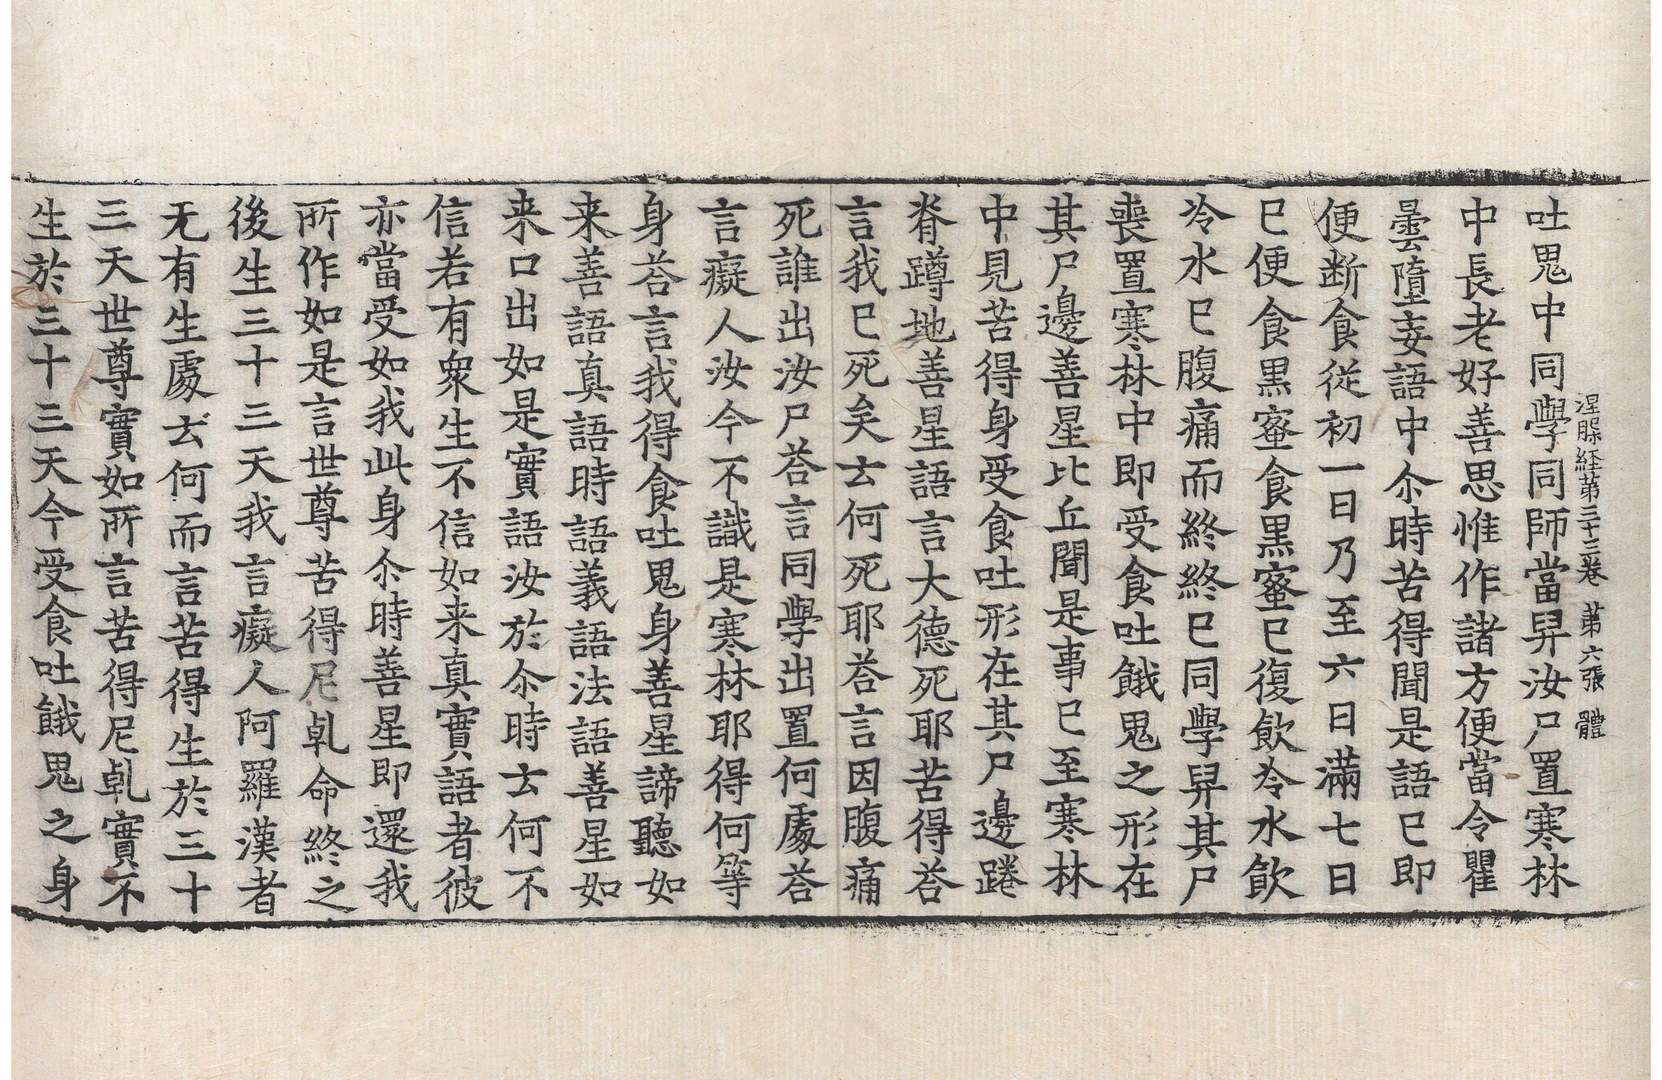 涅槃経苐三十三卷 苐六張 體
吐鬼中同學同師當舁汝尸置寒林
中長老好善思惟作諸方便當令瞿
曇墮妄語中尒時苦得聞是語已即
便断食従初一日乃至六日滿七日
已便食黒蜜食黒蜜已復飲冷水飲
冷水已腹痛而終終已同學舁其尸
喪置寒林中即受食吐餓鬼之形在
其尸邊善星比丘聞是事已至寒林
中見苦得身受食吐形在其尸邊踡
脊蹲地善星語言大德死耶苦得荅
言我已死矣云何死耶荅言因腹痛
死誰出汝尸荅言同學出置何處荅
言癡人汝今不識是寒林耶得何等
身荅言我得食吐鬼身善星諦聽如
来善語真語時語義語法語善星如
来口出如是實語汝於尒時云何不
信若有衆生不信如来真實語者彼
亦當受如我此身尒時善星即還我
所作如是言世尊苦得尼乹命終之
後生三十三天我言癡人阿羅漢者
无有生處云何而言苦得生於三十
三天世尊實如所言苦得尼乹實不
生於三十三天今受食吐餓鬼之身